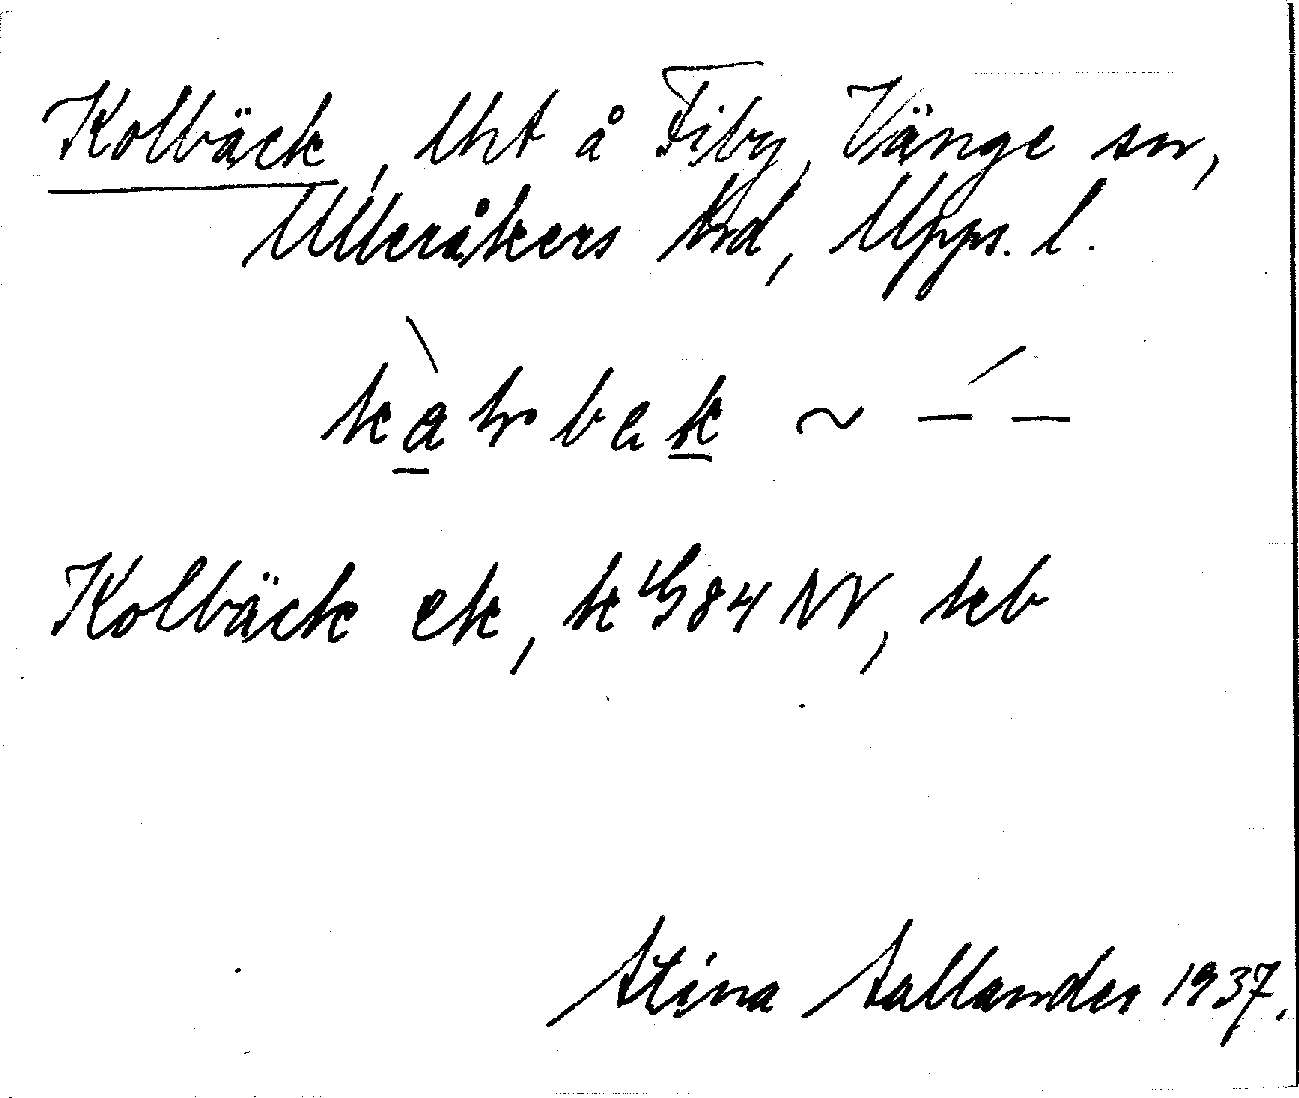 Kolbäck, lht å Fiby, Vänge sn,
Ulleråkers hd, Upps. l.
~ — —
Kolbäck ek, k 4/G84 NV, kb
Stina Sallander 1937.